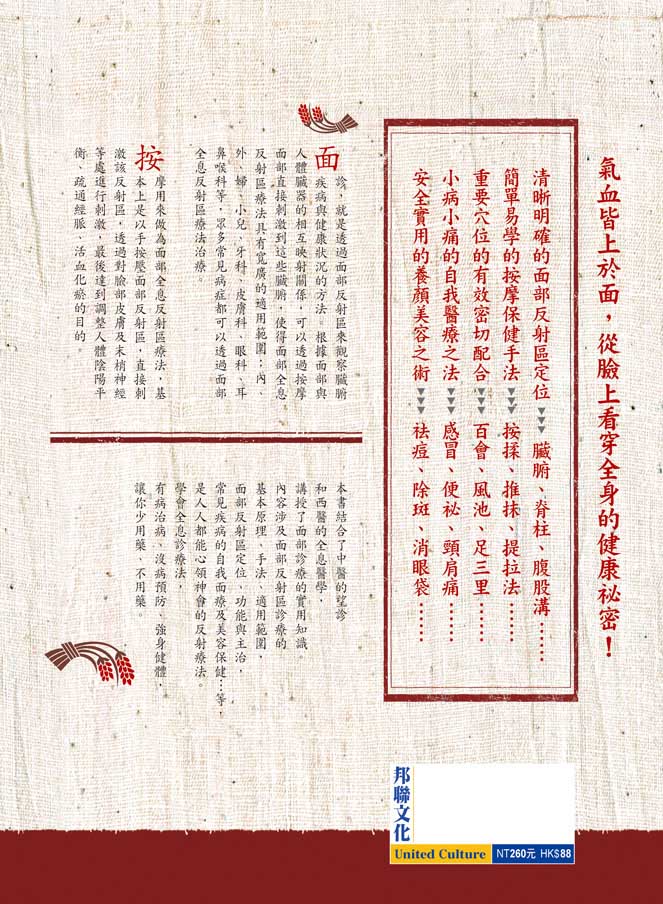 氣血皆上於面，從臉上看穿全身的健康祕密！
清晰明確的面部反射區定位▼▼▼臟腑、脊柱、腹股溝……
簡單易學的按摩保健手法▼▼▼按揉、推抹、提拉法……
重要穴位的有效密切配合▼▼▼百會、風池、足三里……
小病小痛的自我醫療之法▼▼▼感冒、便祕、頸肩痛……
安全實用的養顏美容之術▼▼▼祛痘、除斑、消眼袋……
面診，就是透過面部反射區來觀察臟腑
疾病與健康狀況的方法。根據面部與
人體臟器的相互映射關係，可以透過按摩
面部直接刺激到這些臟腑，使得面部全息
反射區療法具有寬廣的適用範圍；內、
外、婦、小兒、牙科、皮膚科、眼科、耳
鼻喉科等，眾多常見病症都可以透過面部
全息反射區療法治療。
按摩用來做為面部全息反射區療法，基
本上是以手按壓面部反射區，直接刺
激該反射區，透過對臉部皮膚及末梢神經
等處進行刺激，最後達到調整人體陰陽平
衡、疏通經脈、活血化瘀的目的。
本書結合了中醫的望診
和西醫的全息醫學，
講授了面部診療的實用知識。
內容涉及面部反射區診療的
基本原理、手法、適用範圍，
面部反射區定位、功能與主治，
常見疾病的自我面療及美容保健…等，
是人人都能心領神會的反射療法。
學會全息診療法，
有病治病、沒病預防、強身健體，
讓你少用藥、不用藥。
邦聯文化
United Culture
NT260元 HK$88